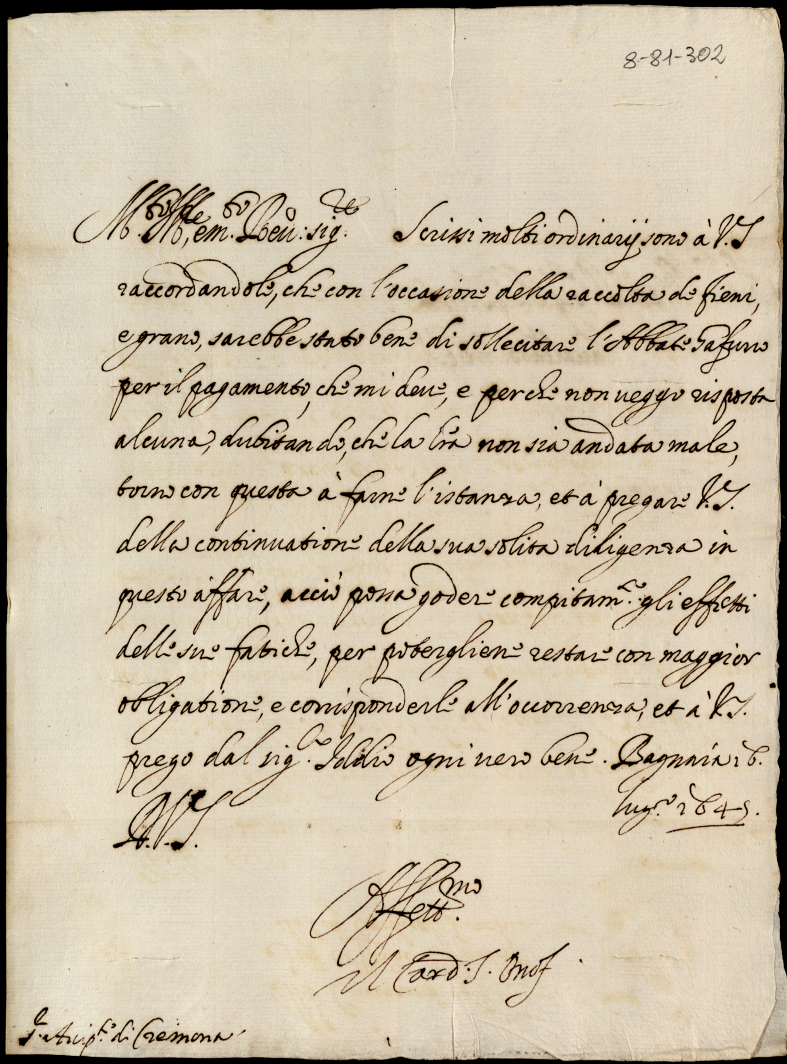 8-81-302
M.to Ill.re, em.to Reu: sig.re Scrissi molti ordinarij sono à V.S
raccordandole, che con l'occasione della raccolta de fieni,
e grano, sarebbe stato bene di sollecitare l'Abbate
per il pagamento, che mi deue, e perche non ueggo risposta
alcuna, dubitando, che la lr̃a non sia andata male,
torno con questa à farne l'istanza, et à pregare V.S.
della continuatione della sua solita diligenza in
questo affare, acciò possa godere compitam.te gli effetti
delle sue fatiche, per potergliene restare con maggior
obligatione, e corrisponderle all'occorrenza, et à V.S.
prego dal sig.re Iddio ogni uero bene. Bagnaia 16.
lug.o 1645.
D. V.S.
Affett.mo
Il Card. S. Onof.
S.r Arcip.te di Cremona